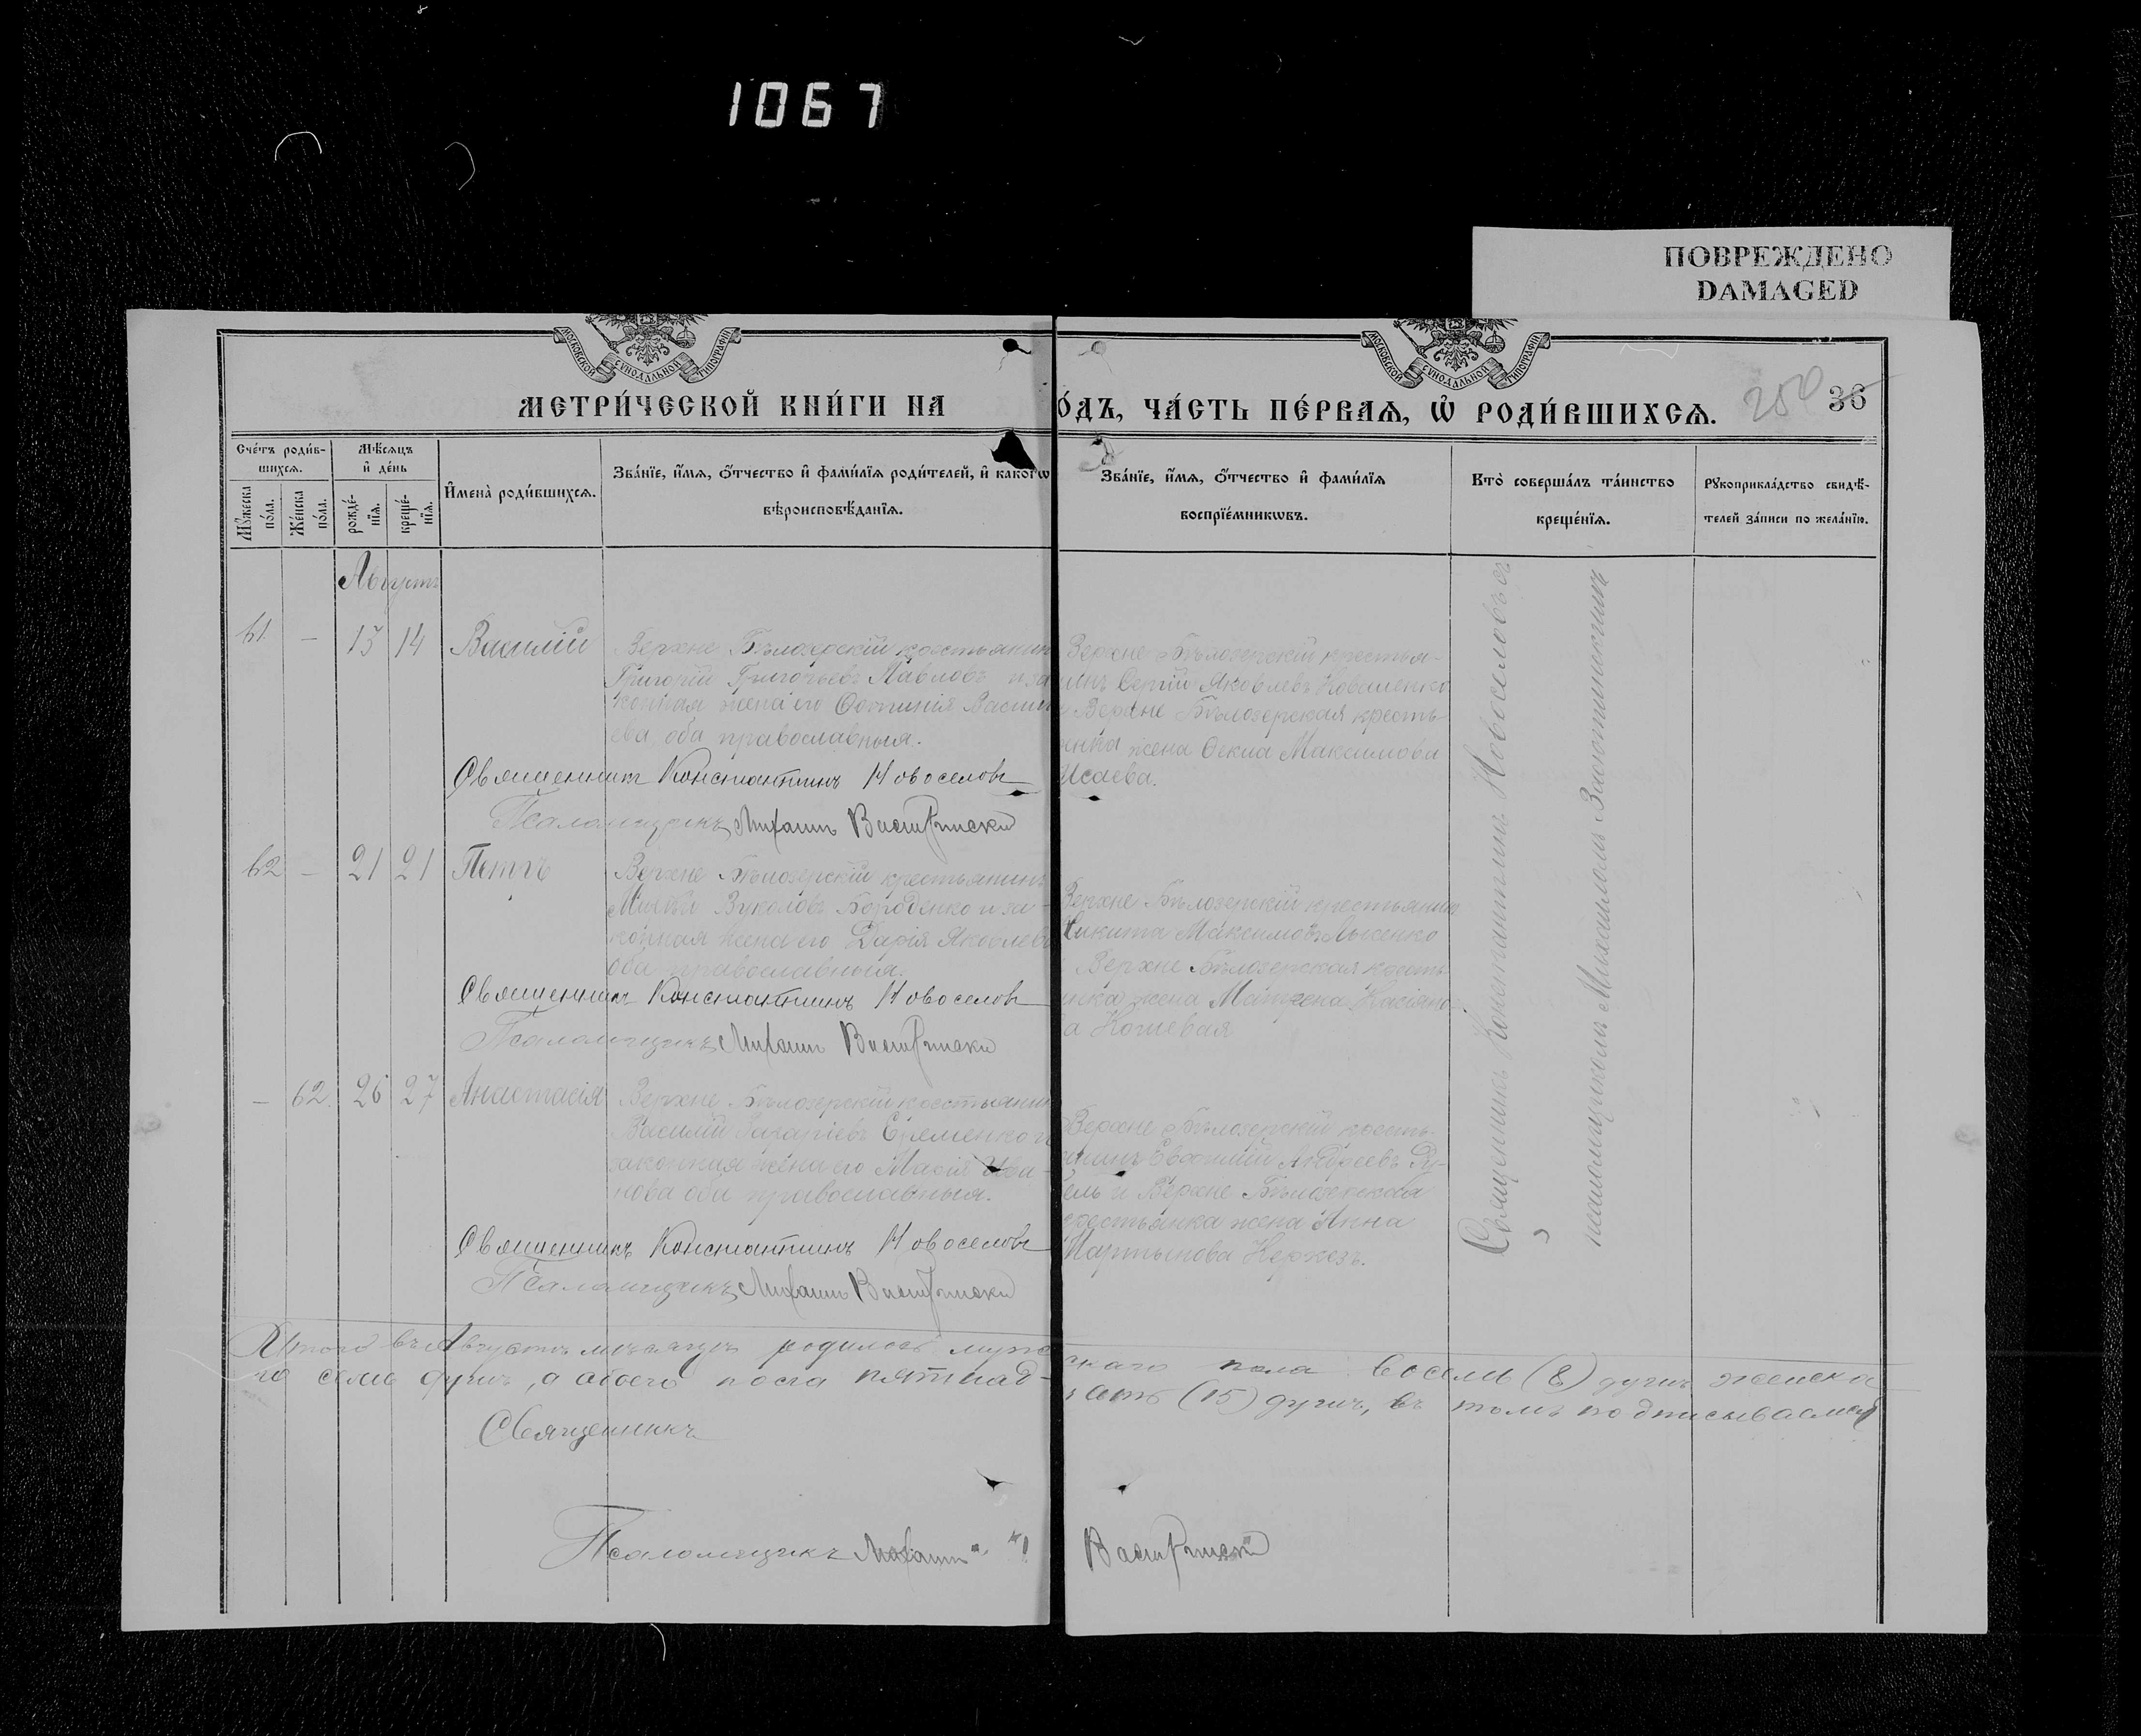 1067
ПОВРЕЖДЕНО
DAMAGED
МОСКОВСКОЙ СѴНОДАЛЬНОЙ ТИПОГРАФІИ
МОСКОВСКОЙ СѴНОДАЛЬНОЙ ТИПОГРАФІИ
МЕТРИ́ЧЕСКОЙ КНИ́ГИ НА
О́ДЪ, ЧА́СТЬ ПЕ́РВАѦ, Ѡ҆ РОДИ́ВШИХСѦ.
250 36
Сче́тъ роди́в-
шихсѧ.
Мѣ́сѧцъ
и҆ де́нь
Мꙋ́жеска
по́ла.
Же́нска
по́ла.
рожде́-
нїѧ.
креще́-
нїѧ.
И҆мена̀ роди́вшихсѧ.
Зва́нїе, и҆́мѧ, ѻ҆́тчество и҆ фами́лїѧ роди́телей, и҆ како́гѡ
вѣроисповѣ́данїѧ.
Зва́нїе, и҆́мѧ, ѻ҆́тчество и҆ фами́лїѧ
воспрїе́мникѡвъ.
Кто̀ соверша́лъ та́инство
креще́нїѧ.
Рꙋкоприкла́дство свидѣ́-
телей за́писи по жела́нїю.
Августъ
61 — 13 14 Василій
Верхне Бѣлозерскій крестьянин
Григорій Григорьевъ Павловъ и за
конная жена его Фотинія Васили
ева оба православныя.
Священникъ Константинъ Новоселовъ
Псаломщикъ Михаилъ
Верхне Бѣлозерскій крестья-
нинъ Сергій Яковлевъ Коваленко
и Верхне Бѣлозерская кресть
янка жена Фекла Максимова
Исаева.
62 — 21 21 Петръ
Верхне Бѣлозерскій крестьянинъ
Вуколовъ Бороденко и за-
конная жена его Дарія Яковлева
оба православныя.
Священникъ Константинъ Новоселовъ
Псаломщикъ Михаилъ
Верхне Бѣлозерскій крестьянин
Никита Максимовъ Лысенко
Верхне Бѣлозерская кресть
янка жена Матрена Касіяно-
ва Кошевая
— 62. 26 27 Анастасія
Верхне Бѣлозерскій крестьянин
Василій Захаріевъ Еременко и
законная жена его Марія Ива-
нова оба православныя.
Священникъ Константинъ Новоселовъ
Псаломщикъ Михаилъ
Верхне Бѣлозерскій кресть
янинъ Евфимій Андреевъ
и Верхне Бѣлозерская
крестьянка жена Анна
Мартынова
Священникъ Константинъ Новоселовъ съ
псаломщикомъ Михаиломъ
Итого въ Августѣ мѣсяцѣ родилось мужескаго пола восемь (8) душъ женска
го семь душъ, а обоего пола пятнадцать (15) душъ, въ томъ подписываемся
Священникъ
Псаломщикъ Михаилъ